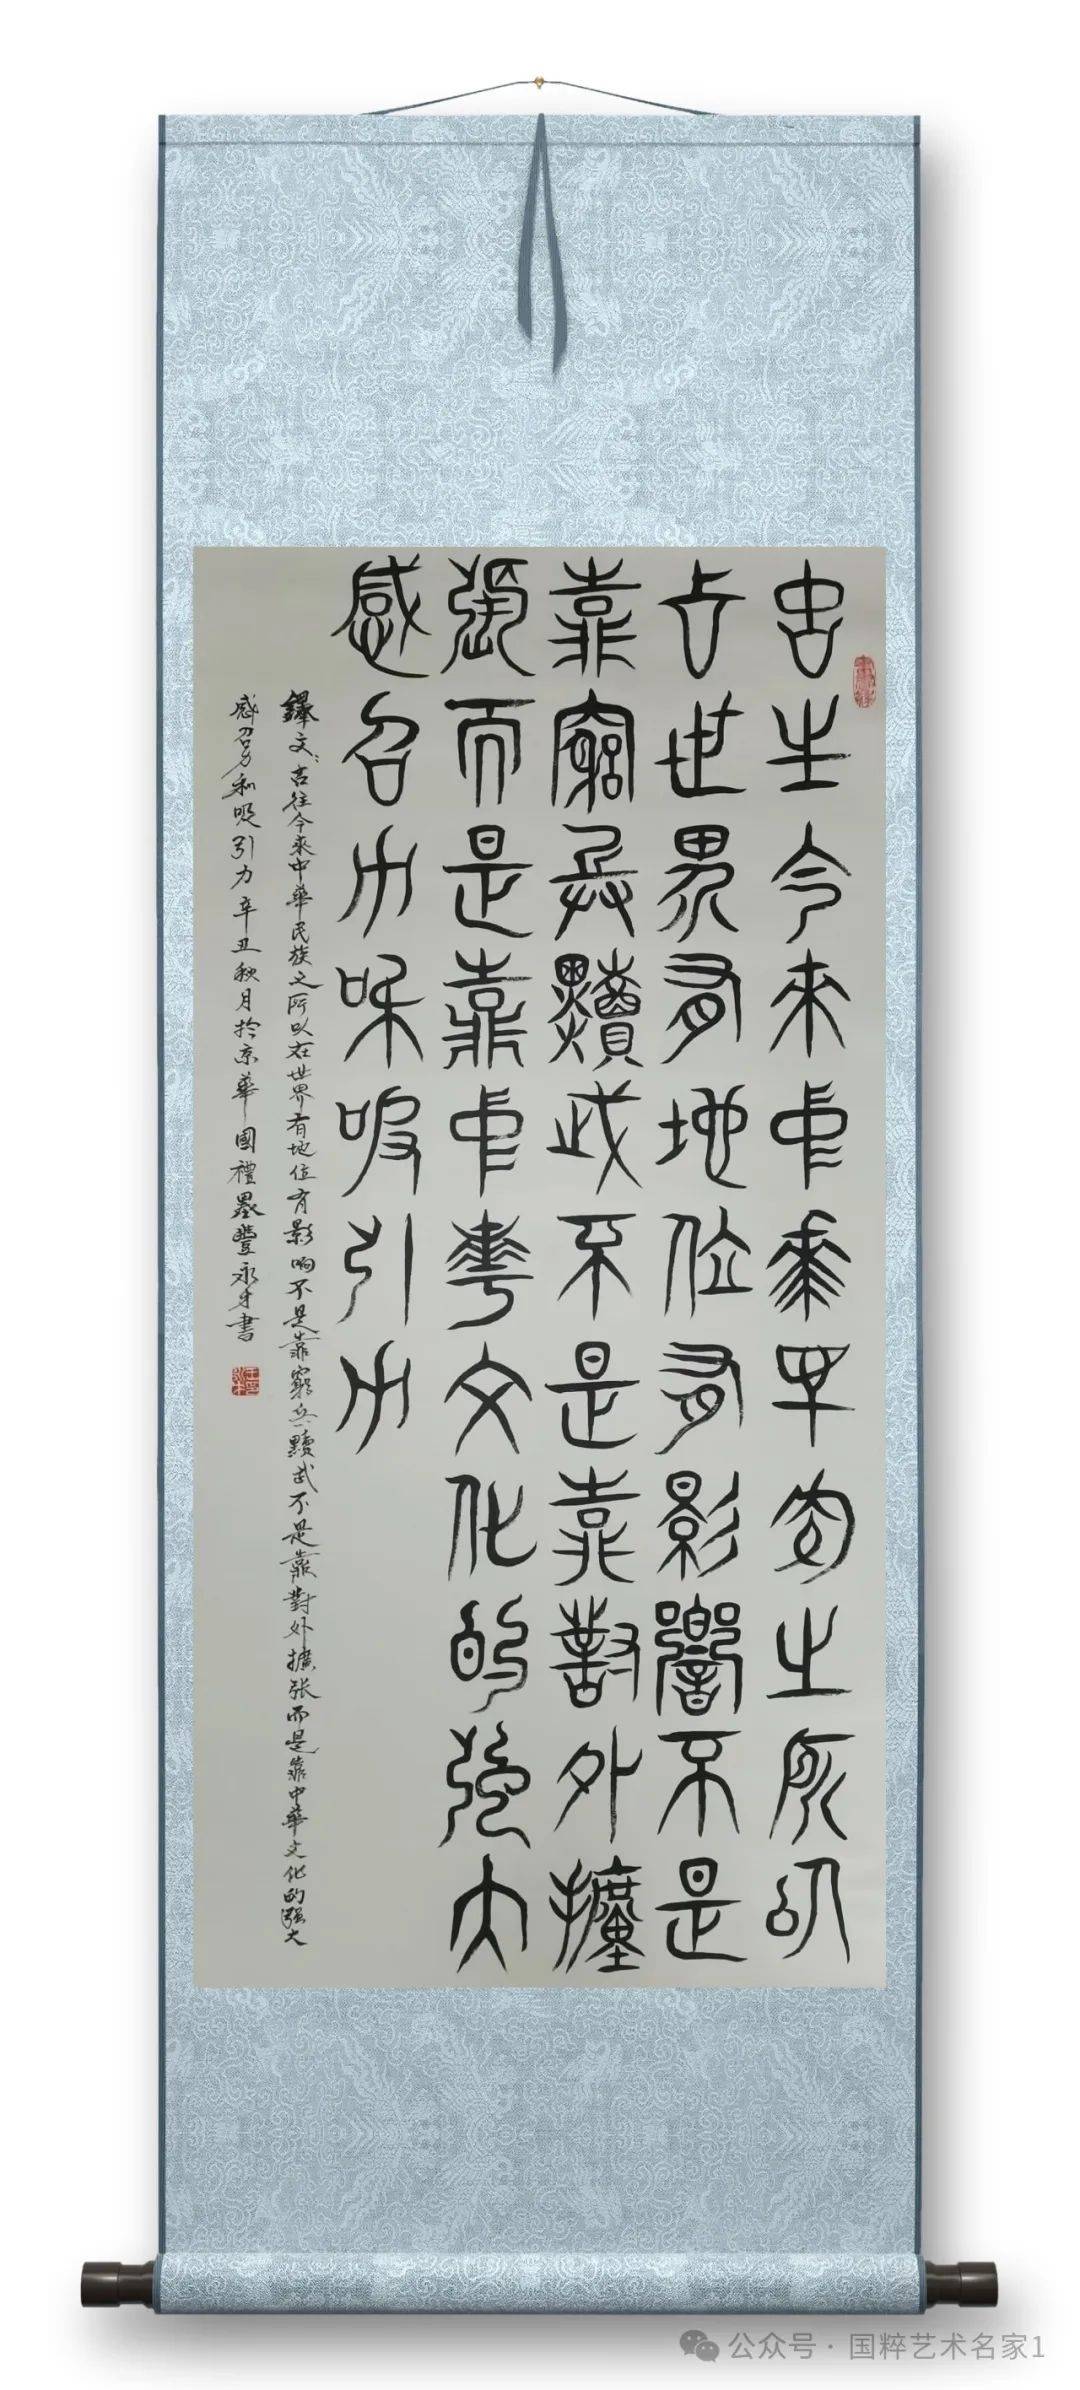 古往今來中華民族之所以
在世界有地位有影響不是
靠窮兵黷武不是靠對外擴
張而是靠中華文化的强大
感召力和吸引力
釋文：古往今來中華民族之所以在世界有地位有影响不是靠窮兵黷武不是靠對外擴张而是靠中華文化的强大
感召力和吸引力辛丑秋月於京華國禮墨豐永才書
公众号·国粹艺术名家1